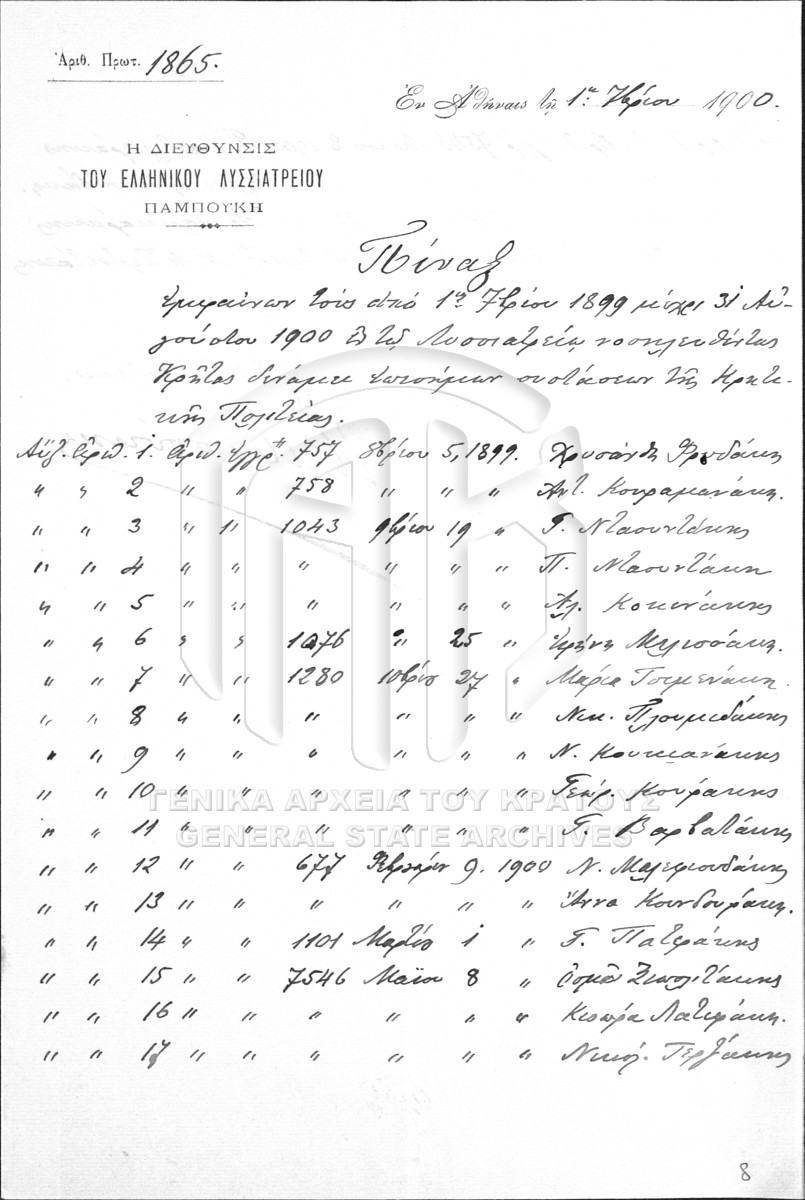 Ἀριθ. Πρωτ. 1865.
Ἐν Ἀθήναις τῇ 1ῃ 7βρίου 1900.
Η ΔΙΕΥΘΥΝΣΙΣ
ΤΟΥ ΕΛΛΗΝΙΚΟΥ ΛΥΣΣΙΑΤΡΕΙΟΥ
ΠΑΜΠΟΥΚΗ
Πίναξ
ἐμφαίνων τοὺς ἀπὸ 1ης 7βρίου 1899 μέχρι 31 Αὐ-
γούστου 1900 ἐν τῷ Λυσσιατρείῳ νοσηλευθέντας
Κρῆτας δυνάμει ἐπισήμων συστάσεων τῆς Κρητι-
κῆς Πολιτείας.
Αὔξ. Ἀριθ. 1. Ἀριθ. ἐγγρ. 757 8βρίου 5, 1899. Χρυσάνθη
" " 2 " " 758 " " " Ἀντ. Κουραμανάκη.
" " 3 " " 1043 9βρίου 19 " Γ. Νταουντάκης
" " 4 " " " " " " Π. Νταουντάκη
" " 5 " " " " " " Ἀλ. Κοκινάκης
" " 6 " " 1076 " 25 " Εἰρήνη Μελισσάκη.
" " 7 " " 1280 10βρίο 27 " Μαρία Τσιμενάκη.
" " 8 " " " " " " Νικ. Πλουμιδάκης
" " 9 " " " " " " Ν. Κουκιανάκης
" " 10 " " " " " " Γεώρ. Κουράκης
" " 11 " " " " " " Γ. Βαρβατάκης
" " 12 " " 677 Φεβρουαρίου 9. 1900 Ν.
" " 13 " " " " " " Ἄννα Κουνδουράκη.
" " 14 " " 1101 Μαρτίου 1 " Γ. Πατεράκης
" " 15 " " 7546 Μαΐου 8 "
" " 16 " " " " " " Πατεράκη.
" " 17 " " " " " " Νικόλ. Γερζάκης
ΓΕΝΙΚΑ ΑΡΧΕΙΑ ΤΟΥ ΚΡΑΤΟΥΣ
GENERAL STATE ARCHIVES
8